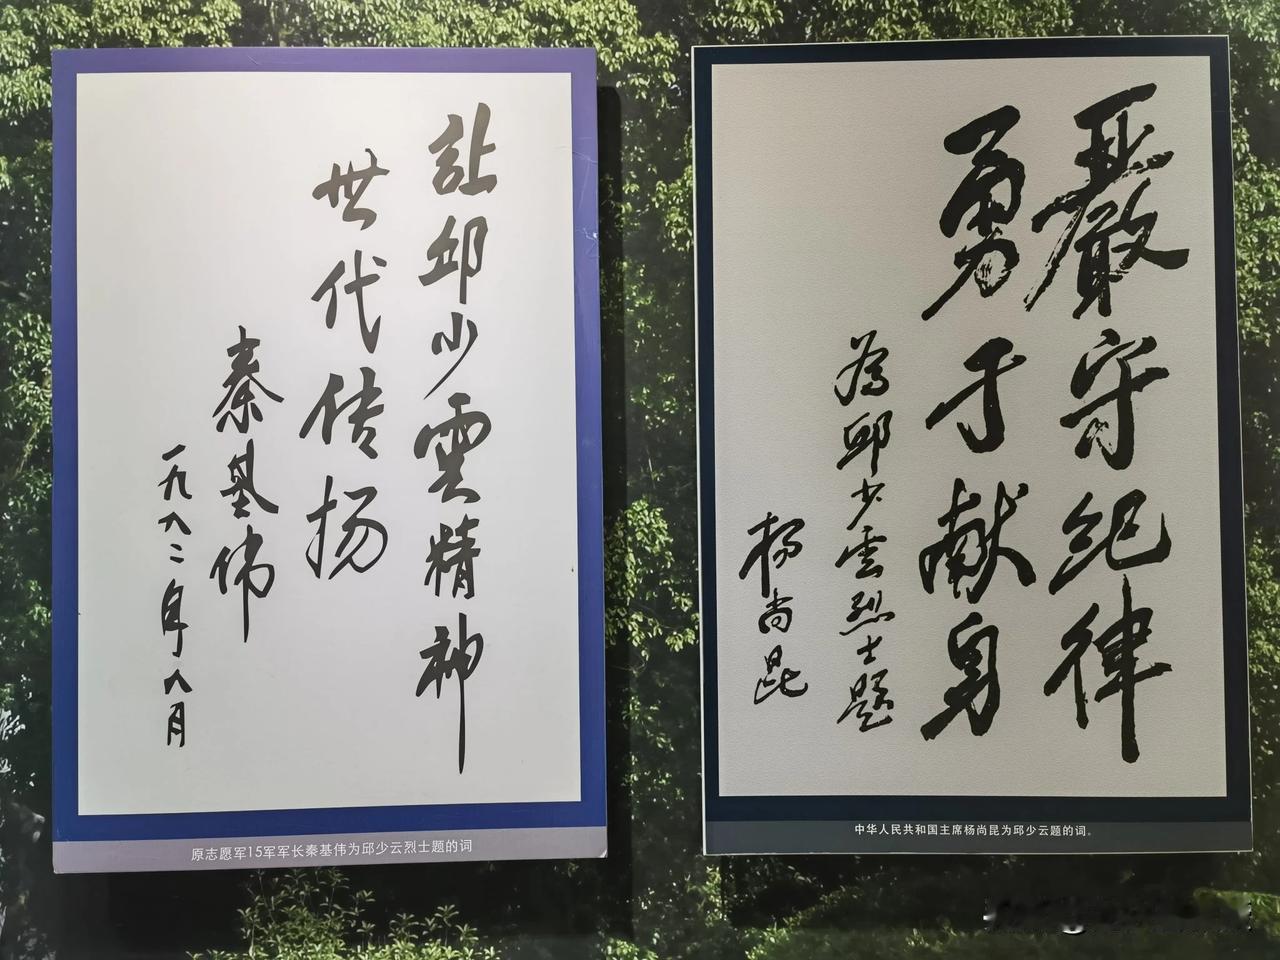 让邱少雲精神
世代传扬
秦基伟
一九八二年八月
原志愿军15军军长秦基伟为邱少云烈士题的词
嚴守纪律
勇于献身
為邱少雲烈士题
杨尚昆
中华人民共和国主席杨尚昆为邱少云题的词。